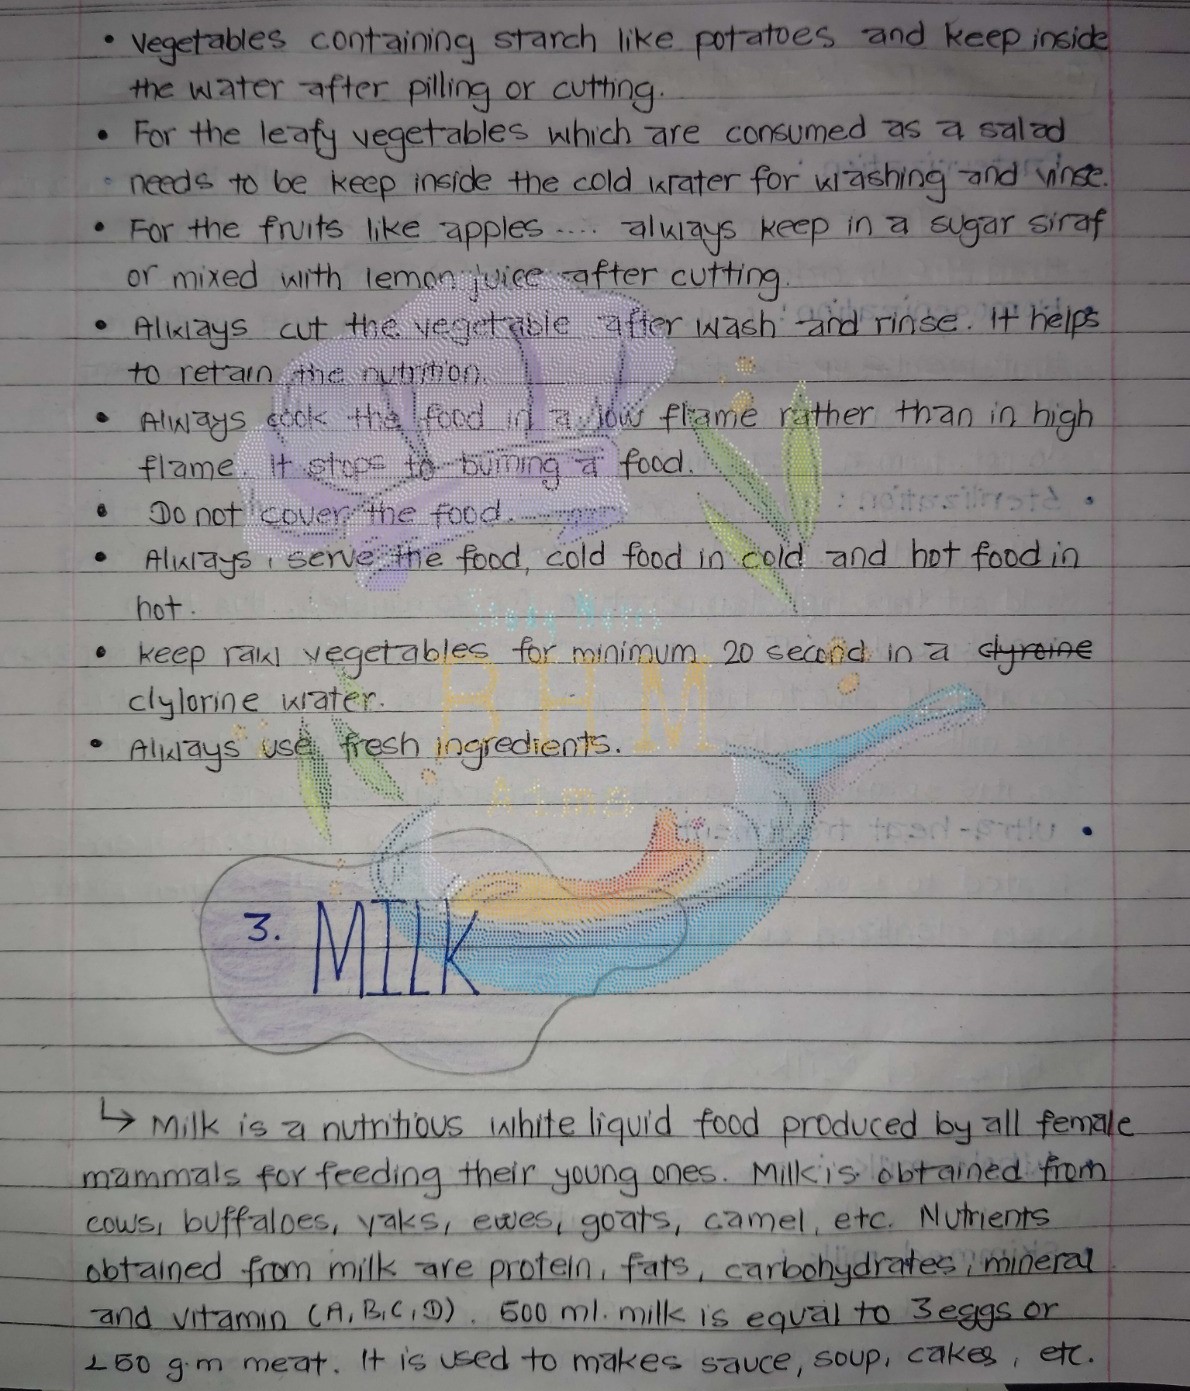 • Vegetables containing starch like potatoes and keep inside
the water after pilling or cutting.
• For the leafy vegetables which are consumed as a salad
needs to be keep inside the cold water for washing and rinse.
• For the fruits like apples .... always keep in a sugar siraf
or mixed with lemon juice after cutting.
• Always cut the vegetable after wash and rinse. It helps
to retain the nutrition.
• Always cook the food in a low flame rather than in high
flame. It stops to burning a food.
• Do not cover the food.
• Always serve the food, cold food in cold and hot food in
hot.
• keep raw vegetables for minimum 20 second in a
clylorine water.
• Always use fresh ingredients.
BHM
3. MILK
↳ Milk is a nutritious white liquid food produced by all female
mammals for feeding their young ones. Milk is obtained from
cows, buffaloes, yaks, ewes, goats, camel, etc. Nutrients
obtained from milk are protein, fats, carbohydrates, mineral
and vitamin (A, B, C, D). 500 ml. milk is equal to 3 eggs or
150 g.m meat. It is used to makes sauce, soup, cakes, etc.